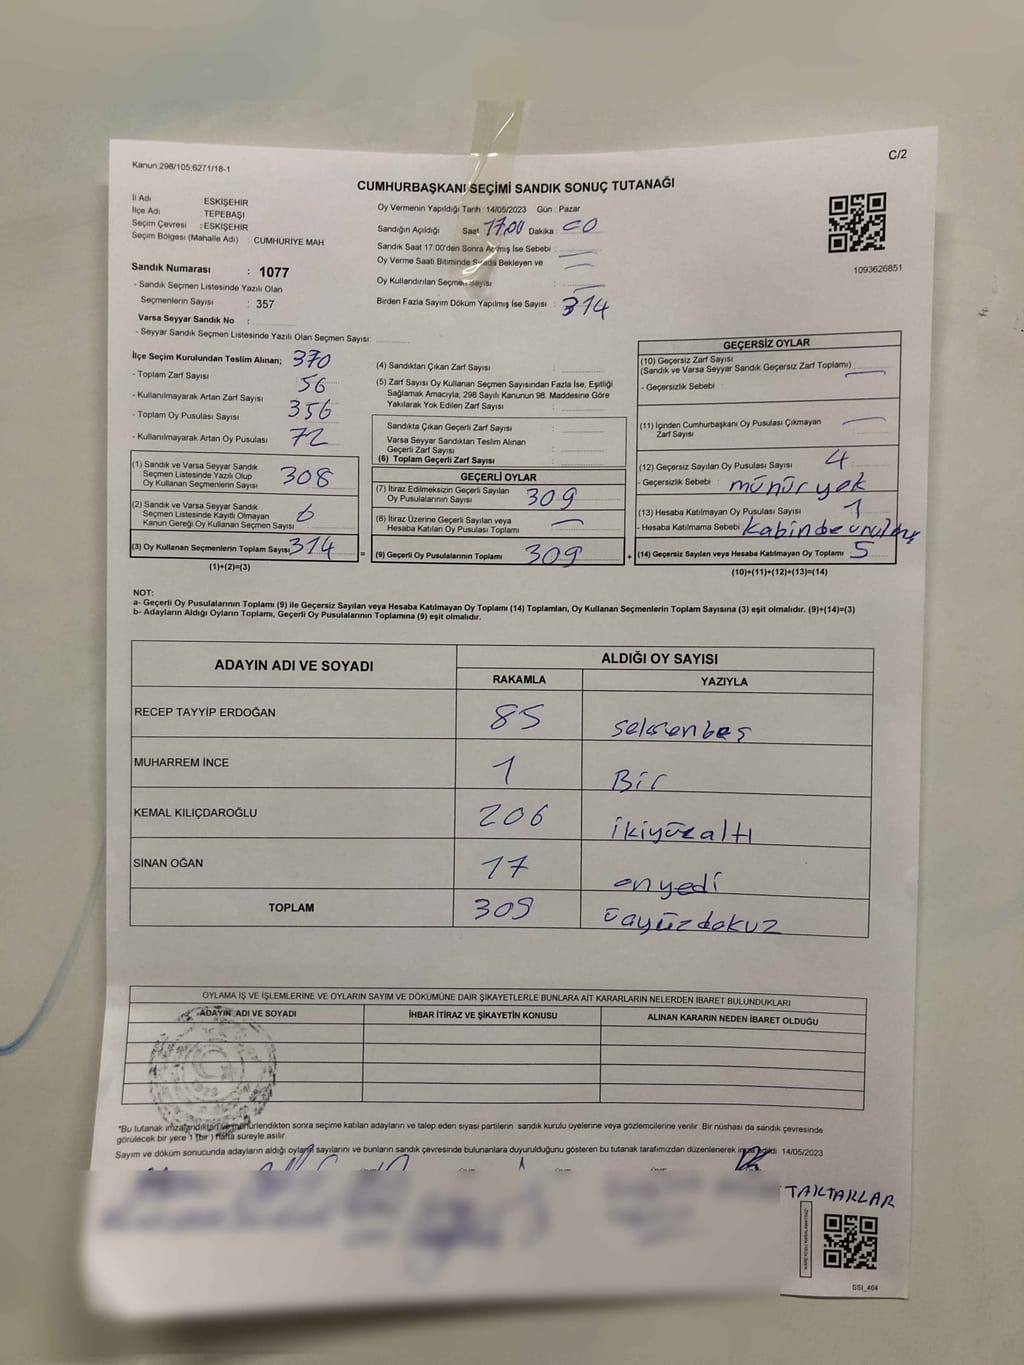 Kanun:298/105:6271/18-1
C/2
CUMHURBAŞKANI SEÇİMİ SANDIK SONUÇ TUTANAĞI
İl Adı ESKİŞEHİR
İlçe Adı TEPEBAŞI
Seçim Çevresi : ESKİŞEHİR
Seçim Bölgesi (Mahalle Adı) : CUMHURİYE MAH
Sandık Numarası : 1077
- Sandık Seçmen Listesinde Yazılı Olan
Seçmenlerin Sayısı : 357
Varsa Seyyar Sandık No :
- Seyyar Sandık Seçmen Listesinde Yazılı Olan Seçmen Sayısı:
Oy Vermenin Yapıldığı Tarih : 14/05/2023 Gün : Pazar
Sandığın Açıldığı Saat 17.00 Dakika :
Sandık Saat 17 00'den Sonra Açılmış İse Sebebi :
Oy Verme Saati Bitiminde Sırada Bekleyen ve
Oy Kullandırılan Seçmen Sayısı :
Birden Fazla Sayım Döküm Yapılmış İse Sayısı : 314
1093626851
İlçe Seçim Kurulundan Teslim Alınan; 370
- Toplam Zarf Sayısı 56
- Kullanılmayarak Artan Zarf Sayısı 356
- Toplam Oy Pusulası Sayısı
- Kullanılmayarak Artan Oy Pusulası 72
(1) Sandık ve Varsa Seyyar Sandık
Seçmen Listesinde Yazılı Olup
Oy Kullanan Seçmenlerin Sayısı 308
(2) Sandık ve Varsa Seyyar Sandık
Seçmen Listesinde Kayıtlı Olmayan
Kanun Gereği Oy Kullanan Seçmen Sayısı : 6
(3) Oy Kullanan Seçmenlerin Toplam Sayısı 314 =
(1)+(2)=(3)
(4) Sandıktan Çıkan Zarf Sayısı :
(5) Zarf Sayısı Oy Kullanan Seçmen Sayısından Fazla İse, Eşitliği
Sağlamak Amacıyla; 298 Sayılı Kanunun 98. Maddesine Göre
Yakılarak Yok Edilen Zarf Sayısı :
Sandıkta Çıkan Geçerli Zarf Sayısı :
Varsa Seyyar Sandıktan Teslim Alınan
Geçerli Zarf Sayısı :
(6) Toplam Geçerli Zarf Sayısı :
GEÇERLİ OYLAR
(7) İtiraz Edilmeksizin Geçerli Sayılan
Oy Pusulalarının Sayısı : 309
(8) İtiraz Üzerine Geçerli Sayılan veya
Hesaba Katılan Oy Pusulası Toplamı :
(9) Geçerli Oy Pusulalarının Toplamı 309 +
GEÇERSİZ OYLAR
(10) Geçersiz Zarf Sayısı
(Sandık ve Varsa Seyyar Sandık Geçersiz Zarf Toplamı) :
- Geçersizlik Sebebi :
(11) İçinden Cumhurbaşkanı Oy Pusulası Çıkmayan
Zarf Sayısı :
(12) Geçersiz Sayılan Oy Pusulası Sayısı : 4
- Geçersizlik Sebebi : münür yok
(13) Hesaba Katılmayan Oy Pusulası Sayısı : 1
- Hesaba Katılmama Sebebi : kabinde vrulmş
(14) Geçersiz Sayılan veya Hesaba Katılmayan Oy Toplamı : 5
(10)+(11)+(12)+(13)=(14)
NOT:
a- Geçerli Oy Pusulalarının Toplamı (9) ile Geçersiz Sayılan veya Hesaba Katılmayan Oy Toplamı (14) Toplamları, Oy Kullanan Seçmenlerin Toplam Sayısına (3) eşit olmalıdır. (9)+(14)=(3)
b- Adayların Aldığı Oyların Toplamı, Geçerli Oy Pusulalarının Toplamına (9) eşit olmalıdır.
ADAYIN ADI VE SOYADI ALDIĞI OY SAYISI
RAKAMLA YAZIYLA
RECEP TAYYİP ERDOĞAN 85 seksenbeş
MUHARREM İNCE 1 Bir
KEMAL KILIÇDAROĞLU 206 ikiyüzaltı
SİNAN OĞAN 17 onyedi
TOPLAM 309 üçyüzdokuz
OYLAMA İŞ VE İŞLEMLERİNE VE OYLARIN SAYIM VE DÖKÜMÜNE DAİR ŞİKAYETLERLE BUNLARA AİT KARARLARIN NELERDEN İBARET BULUNDUKLARI
ADAYIN ADI VE SOYADI İHBAR İTİRAZ VE ŞİKAYETİN KONUSU ALINAN KARARIN NEDEN İBARET OLDUĞU
*Bu tutanak imzalandıktan ve mühürlendikten sonra seçime katılan adayların ve talep eden siyasi partilerin sandık kurulu üyelerine veya gözlemcilerine verilir. Bir nüshası da sandık çevresinde
görülecek bir yere 1 (bir ) hafta süreyle asılır.
Sayım ve döküm sonucunda adayların aldığı oyların sayılarını ve bunların sandık çevresinde bulunanlara duyurulduğunu gösteren bu tutanak tarafımızdan düzenlenerek imza edildi. 14/05/2023
TAKTAKLAR
SSI_404